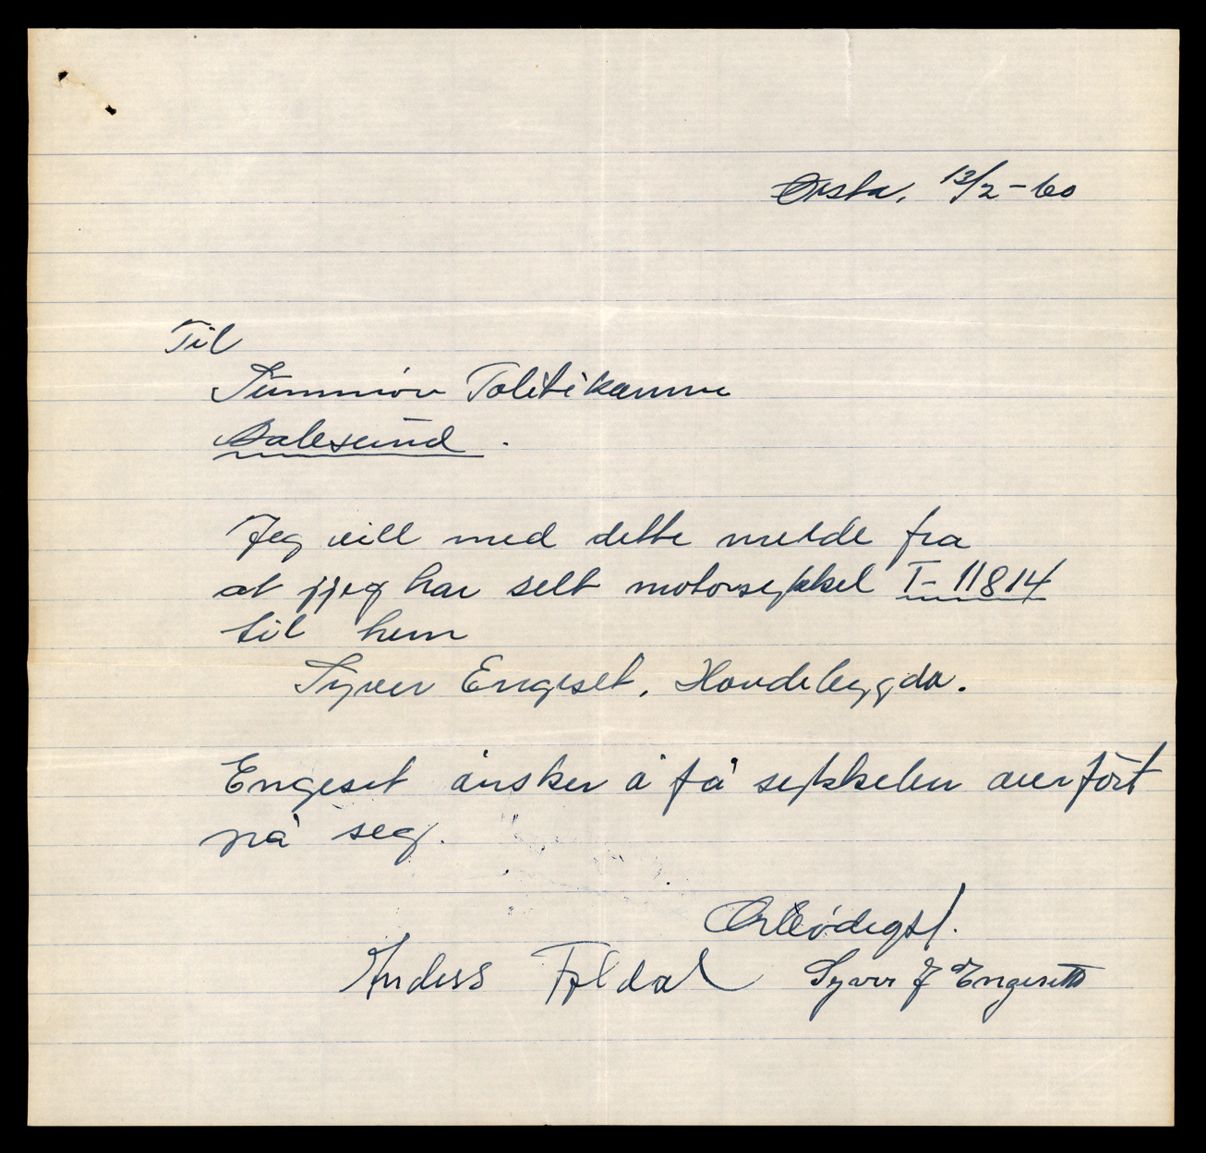 Ørsta, 13/2-60
Til
Sunnmör Politikamme
Aalesund.
Jeg vill med dette melde fra
at jjeg har selt motorsykkel T-11814
til herr
Syver Engeset, Hovdebygda.
Engeset önsker å få sykkelen överfört
på seg.
Ærbödigst.
Anders Foldal Syver J Engeseth